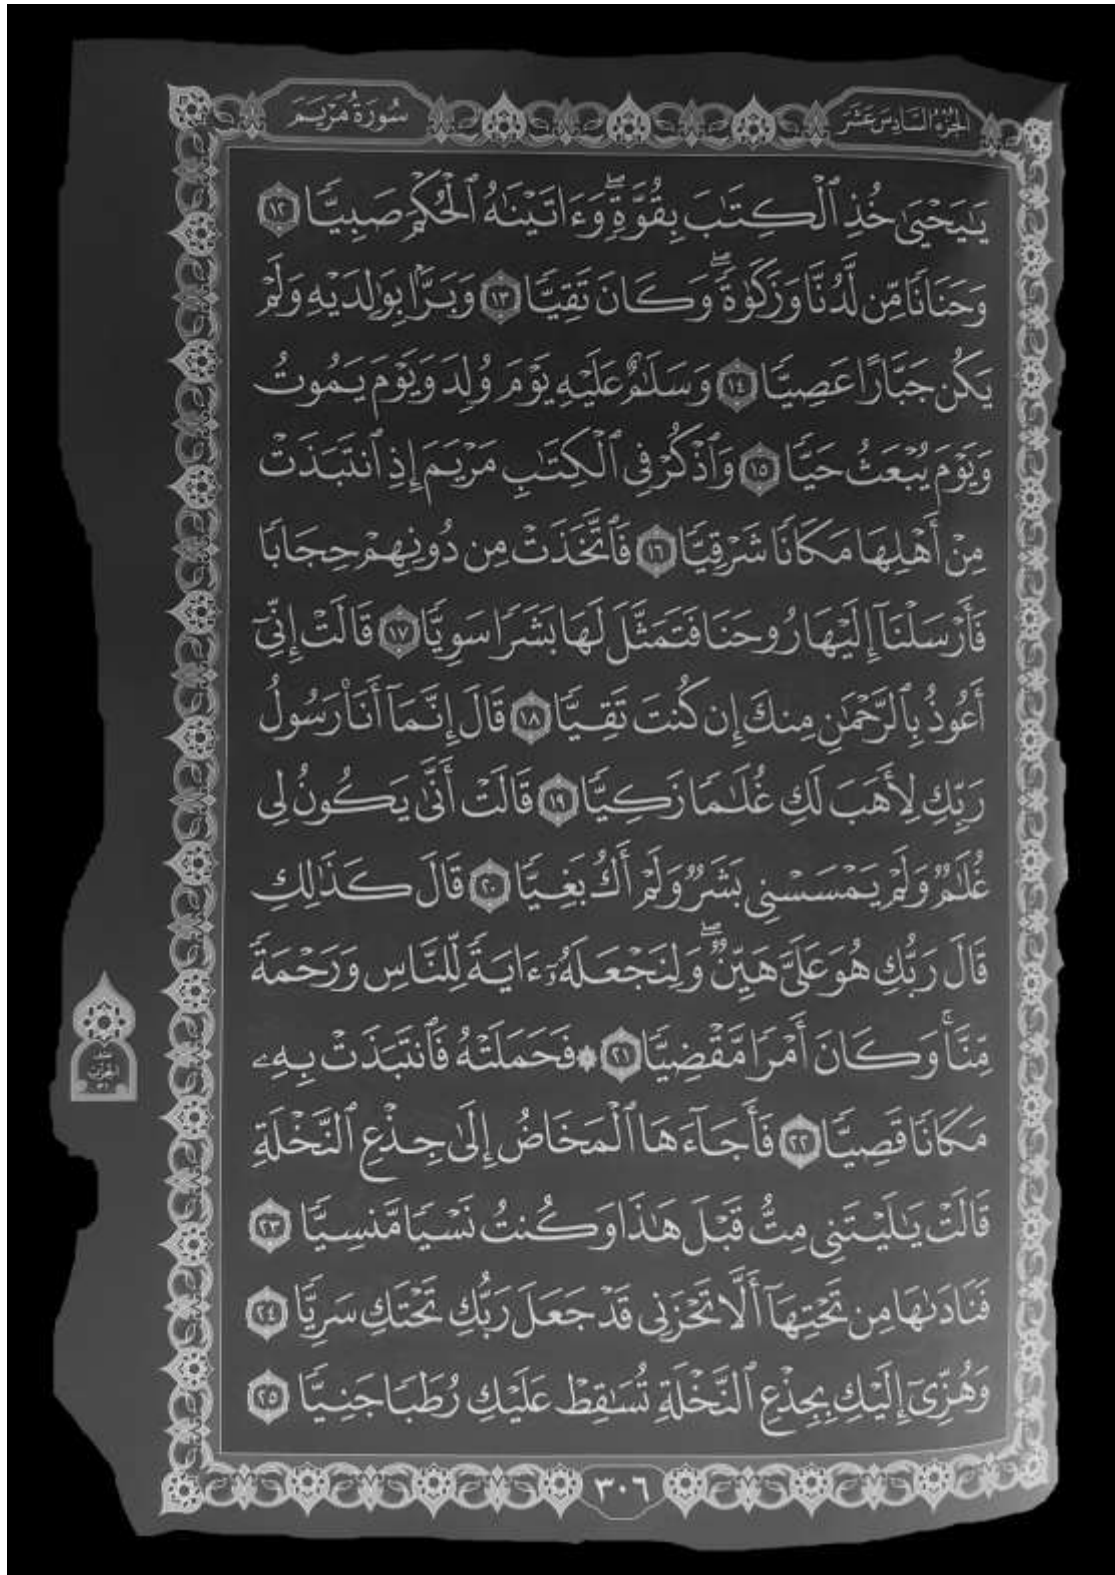 الجزء السادس عشر
سورة مريم
يَٰيَحْيَىٰ خُذِ ٱلْكِتَٰبَ بِقُوَّةٍۖ وَءَاتَيْنَٰهُ ٱلْحُكْمَ صَبِيًّا ١٢
وَحَنَانًا مِّن لَّدُنَّا وَزَكَوٰةًۖ وَكَانَ تَقِيًّا ١٣ وَبَرًّۢا بِوَٰلِدَيْهِ وَلَمْ
يَكُن جَبَّارًا عَصِيًّا ١٤ وَسَلَٰمٌ عَلَيْهِ يَوْمَ وُلِدَ وَيَوْمَ يَمُوتُ
وَيَوْمَ يُبْعَثُ حَيًّا ١٥ وَٱذْكُرْ فِى ٱلْكِتَٰبِ مَرْيَمَ إِذِ ٱنتَبَذَتْ
مِنْ أَهْلِهَا مَكَانًا شَرْقِيًّا ١٦ فَٱتَّخَذَتْ مِن دُونِهِمْ حِجَابًا
فَأَرْسَلْنَآ إِلَيْهَا رُوحَنَا فَتَمَثَّلَ لَهَا بَشَرًا سَوِيًّا ١٧ قَالَتْ إِنِّىٓ
أَعُوذُ بِٱلرَّحْمَٰنِ مِنكَ إِن كُنتَ تَقِيًّا ١٨ قَالَ إِنَّمَآ أَنَا۠ رَسُولُ
رَبِّكِ لِأَهَبَ لَكِ غُلَٰمًا زَكِيًّا ١٩ قَالَتْ أَنَّىٰ يَكُونُ لِى
غُلَٰمٌ وَلَمْ يَمْسَسْنِى بَشَرٌ وَلَمْ أَكُ بَغِيًّا ٢٠ قَالَ كَذَٰلِكِ
قَالَ رَبُّكِ هُوَ عَلَىَّ هَيِّنٌۖ وَلِنَجْعَلَهُۥٓ ءَايَةً لِّلنَّاسِ وَرَحْمَةً
مِّنَّاۚ وَكَانَ أَمْرًا مَّقْضِيًّا ٢١ ۞ فَحَمَلَتْهُ فَٱنتَبَذَتْ بِهِۦ
مَكَانًا قَصِيًّا ٢٢ فَأَجَآءَهَا ٱلْمَخَاضُ إِلَىٰ جِذْعِ ٱلنَّخْلَةِ
قَالَتْ يَٰلَيْتَنِى مِتُّ قَبْلَ هَٰذَا وَكُنتُ نَسْيًا مَّنسِيًّا ٢٣
فَنَادَىٰهَا مِن تَحْتِهَآ أَلَّا تَحْزَنِى قَدْ جَعَلَ رَبُّكِ تَحْتَكِ سَرِيًّا ٢٤
وَهُزِّىٓ إِلَيْكِ بِجِذْعِ ٱلنَّخْلَةِ تُسَٰقِطْ عَلَيْكِ رُطَبًا جَنِيًّا ٢٥
٣٠٦